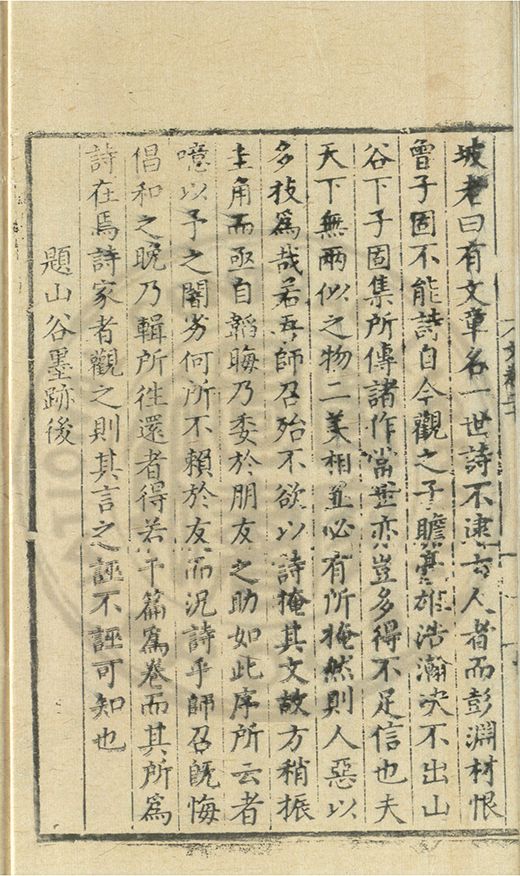 坡老曰有文章名一世詩不逮古人者而彭淵材恨
曾子固不能詩自今觀之子瞻豪雄浩瀚決不出山
谷下子固集所傳諸作當世亦豈多得不足信也夫
天下無兩似之物二美相並必有所掩然則人惡以
多技爲哉若吾師召殆不欲以詩掩其文故方稍振
圭角而亟自韜晦乃委於朋友之助如此序所云者
噫以予之闇劣何所不賴於友而況詩乎師召旣悔
倡和之晚乃輯所徃還者得若干篇爲卷而其所爲
詩在焉詩家者觀之則其言之誣不誣可知也
題山谷墨跡後